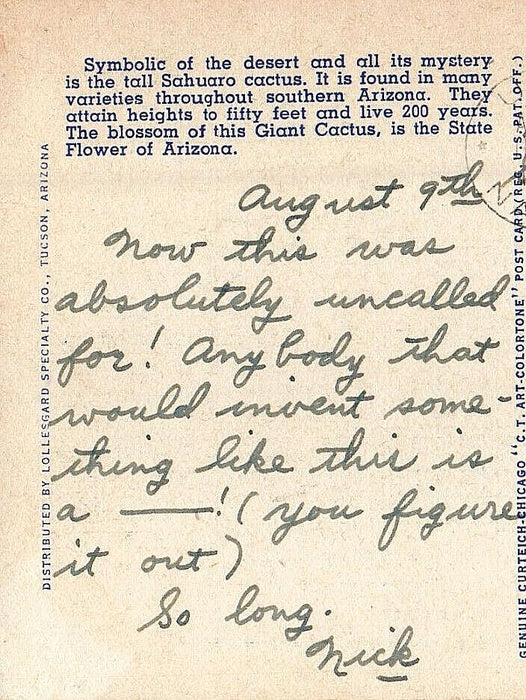 Symbolic of the desert and all its mystery
is the tall Sahuaro cactus. It is found in many
varieties throughout southern Arizona. They
attain heights to fifty feet and live 200 years.
The blossom of this Giant Cactus, is the State
Flower of Arizona.
August 9th
Now this was
absolutely uncalled
for! Anybody that
would invent some-
thing like this is
a ——! (you figure
it out)
So long.
Nick
DISTRIBUTED BY LOLLESGARD SPECIALTY CO., TUCSON, ARIZONA
GENUINE CURTEICH-CHICAGO "C.T. ART-COLORTONE" POST CARD (REG. U.S. PAT. OFF.)